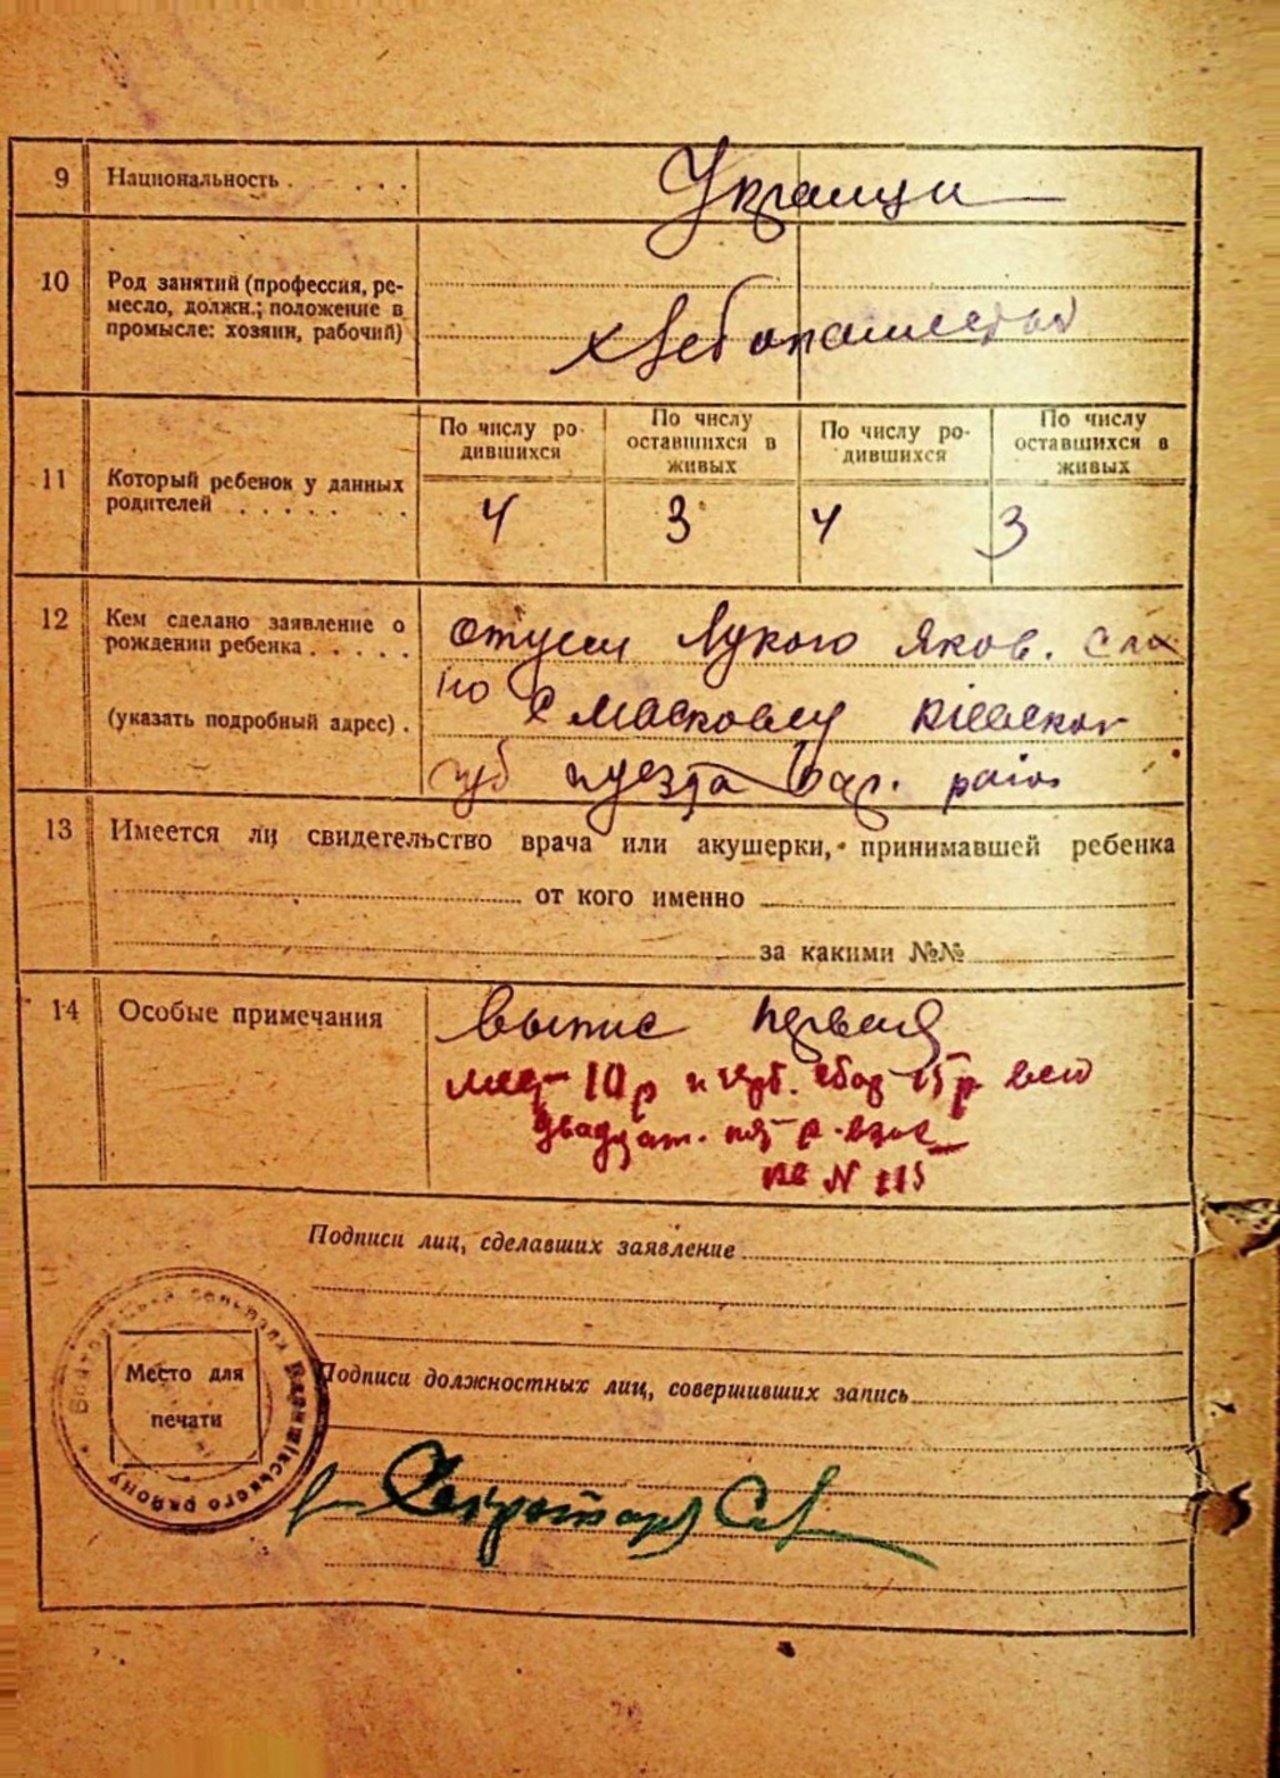 9 Национальность . . . . .
Украинци
10 Род занятий (профессия, ре-
месло, должн.; положение в
промысле: хозяин, рабочий)
хлебопашество
11 Который ребенок у данных
родителей . . . . . . .
По числу ро-
дившихся
По числу
оставшихся в
живых
По числу ро-
дившихся
По числу
оставшихся в
живых
4 3 4 3
12 Кем сделано заявление о
рождении ребенка . . . . .
(указать подробный адрес) .
отцем Лукою Яков.
с
губ и уезда рай
13 Имеется ли свидетельство врача или акушерки, принимавшей ребенка
от кого именно
за какими №№
14 Особые примечания
выпис первая
10 р и герб. сбор 15 р всего
двадцат. пят р.
кв N 115
Подписи лиц, сделавших заявление
Место для
печати
Подписи должностных лиц, совершивших запись
Секретарь